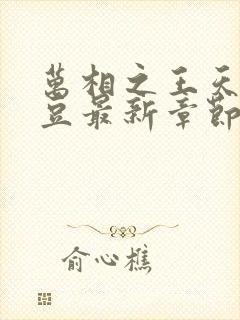 萬相之王天
豆最新章節
俞心樵